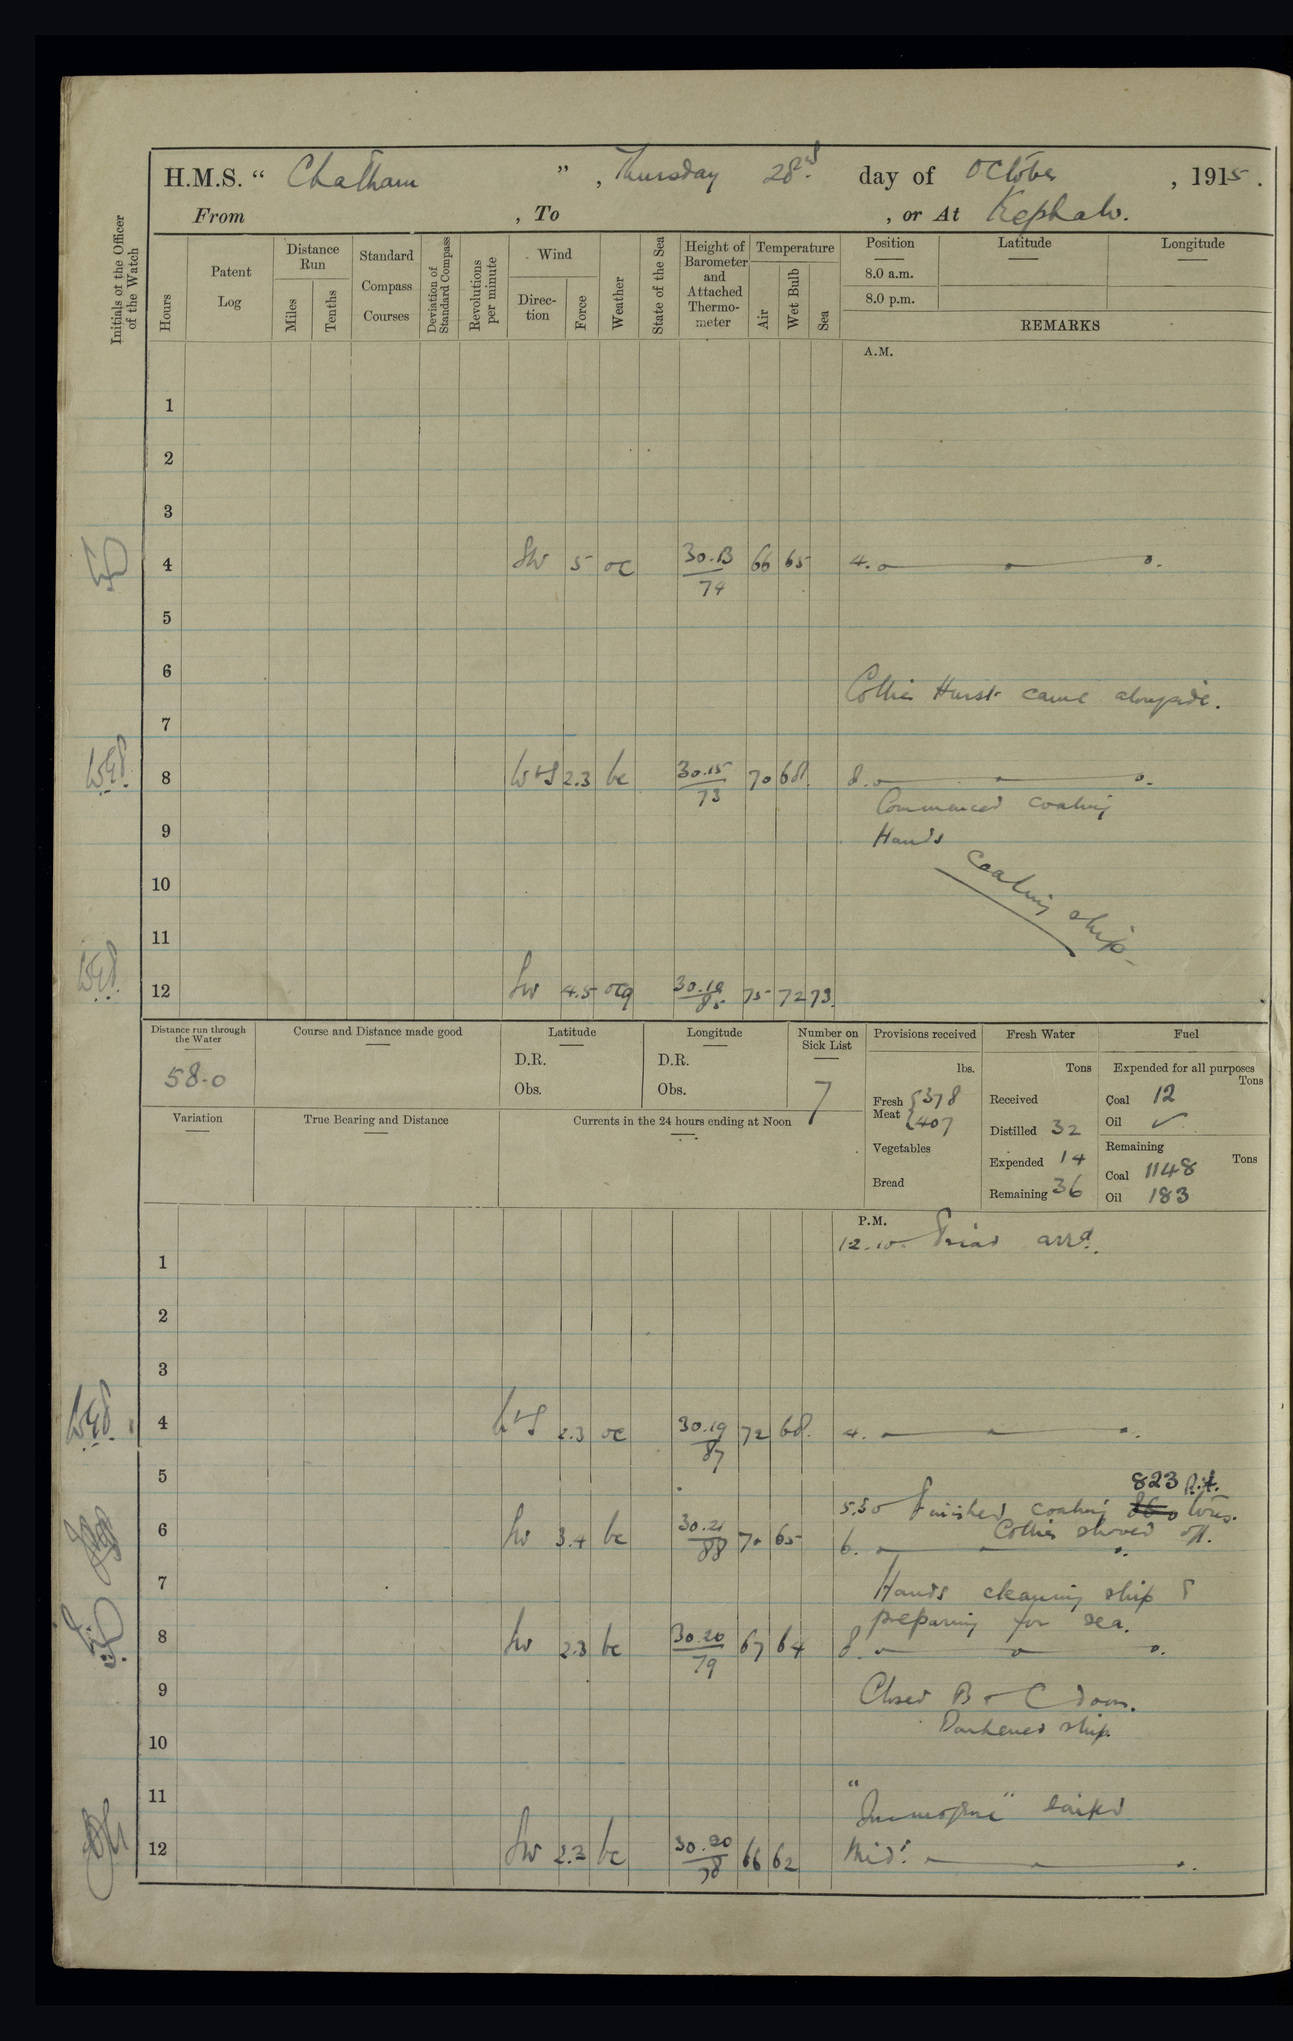 H.M.S. “ Chatham ” , Thursday 28nd day of October , 1915.
From , To , or At Kephalo.
Initials of the Officer of the Watch
Hours
Patent Log
Distance Run
Miles
Tenths
Standard Compass Courses
Deviation of Standard Compass
Revolutions per minute
Wind
Direc-tion
Force
Weather
State of the Sea
Height of Barometer and Attached Thermo-meter
Temperature
Air
Wet Bulb
Sea
Position
8.0 a.m.
8.0 p.m.
Latitude
Longitude
REMARKS
A.M.
1
2
3
4 SW 5 oc 30.13/74 66 65 4.
5
6
Collier Hurst came alongside.
7
8 WxS 2.3 bc 30.15/73 70 68. 8.
Commenced coaling
9 Hands coaling ship
10
11
12 SW 4.5 ocq 30.19/85 75 72 73.
Distance run through the Water
58.0
Course and Distance made good
Latitude
D.R.
Obs.
Longitude
D.R.
Obs.
Number on Sick List
7
Provisions received
lbs.
Fresh Meat { 378
{ 407
Vegetables
Bread
Fresh Water
Tons
Received
Distilled 32
Expended 14
Remaining 36
Fuel
Expended for all purposes
Tons
Coal 12
Oil ✓
Remaining
Tons
Coal 1148
Oil 183
Variation
True Bearing and Distance
Currents in the 24 hours ending at Noon
P.M.
12.10. Triad arrd.
1
2
3
4 WxS 2.3 oc 30.19/87 72 68. 4.
5
823
5.30 Finished coaling tons.
Collier shoved off.
6 SW 3.4 bc 30.21/88 70 65 6.
7 Hands cleaning ship &
preparing for sea.
8 SW 2.3 bc 30.20/79 67 64 8.
9 Closed B & C doors.
Darkened ship.
10
11 "Immogene" sailed
12 SW 2.2 bc 30.20/78 66 62 Midt.